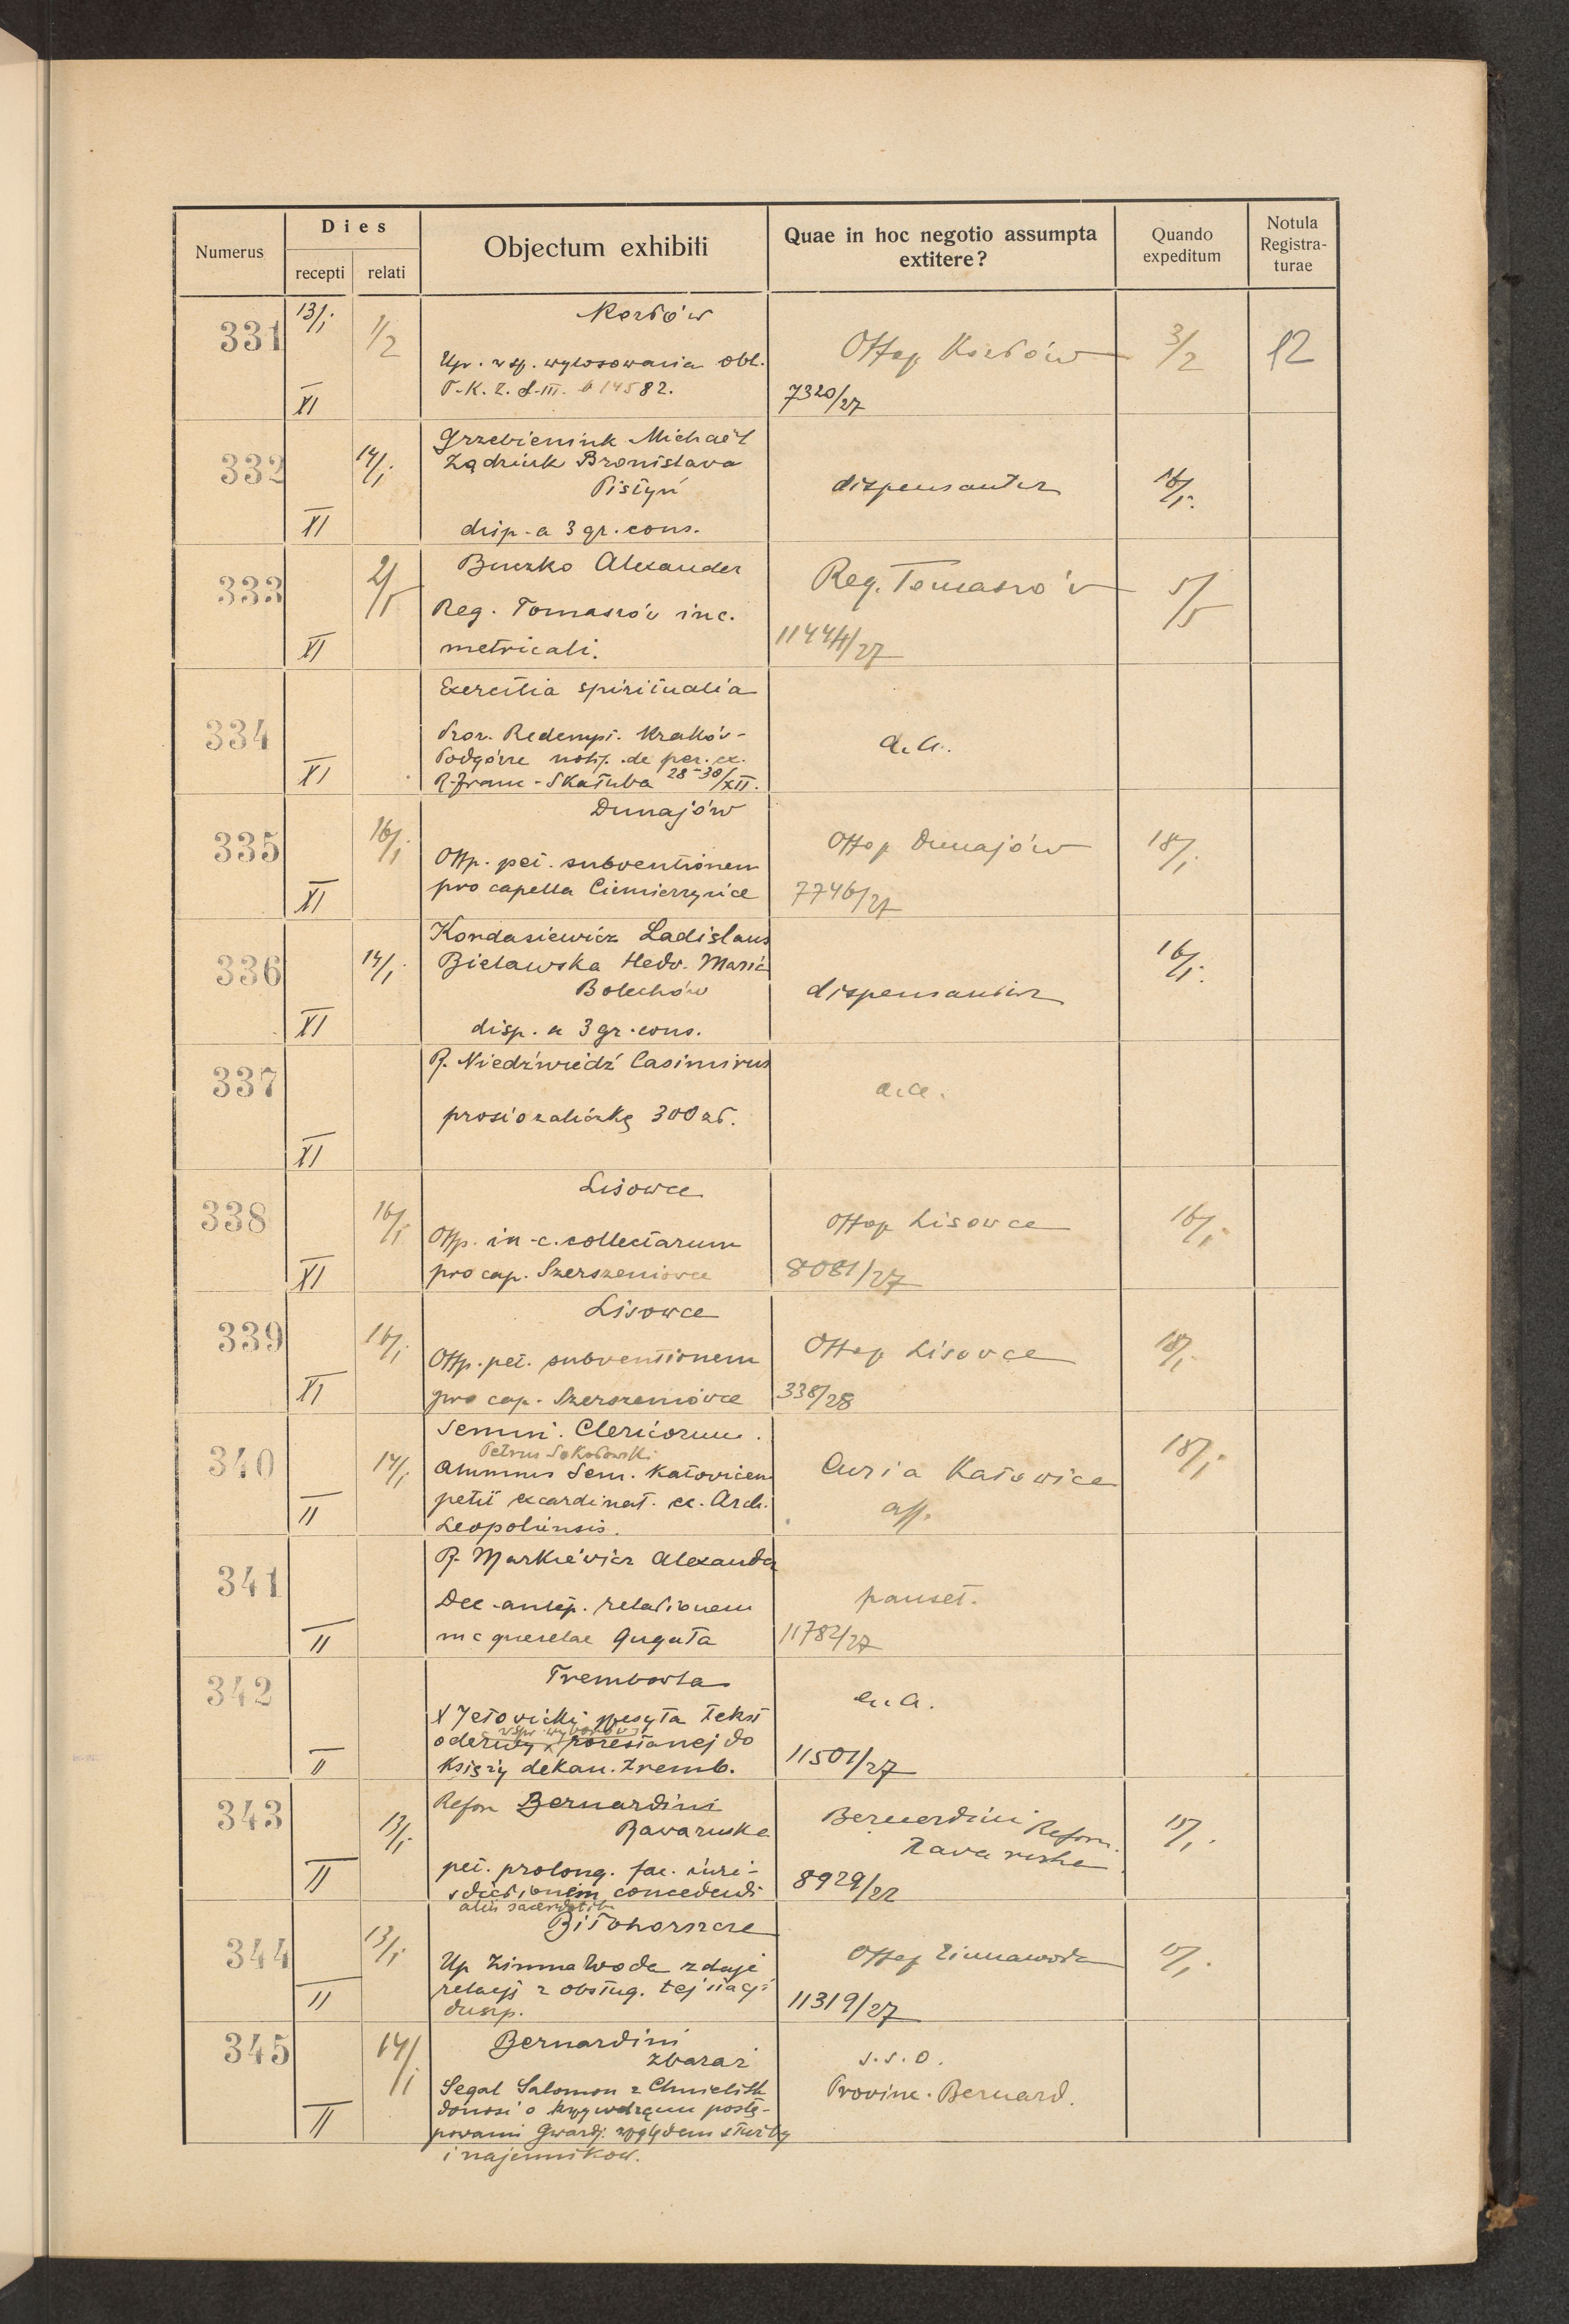 Numerus
Dies
recepti
relati
Objectum exhibiti
Quae in hoc negotio assumpta
extitere?
Quando
expeditum
Notula
Registra-
turae
331
13/I
XI
1/2
Kozłów
Up. w sp. wylosowania obl.
T.K.Z. S.III. 14582.
Offop Kozłów
7320/27
3/2
12
332
XI
14/I
Grzebieniuk Michaël
Żądziuk Bronislava
Pistyń
disp. a 3 gr. cons.
dispensantur
16/I.
333
XI
2/5
Buczko Alexander
Reg. Tomaszów inc.
metricali.
Reg. Tomaszów
11444/27
5/5
334
XI
Exercitia spiritualia
Prov. Redempt. Kraków-
Podgórze notif. de per. ex.
R. Franc. Skałuba 28-30/XII.
a. a.
335
XI
16/I
Dunajów
Offp. pet. subventionem
pro capella Ciemierzyńce
Offop Dunajów
7746/27
18/I
336
XI
14/I
Kordasiewicz Ladislaus
Bielawska Hedv. Maria
Bolechów
disp. a 3 gr. cons.
dispensantur
16/I.
337
XI
R. Niedźwiedź Casimirus
prosi o zaliczkę 300 zł.
a. a.
338
XI
16/I
Lisowce
Offp. in c. collectarum
pro cap. Szerszeniowce
Offop Lisowce
8081/27
16/I
339
XI
16/I
Lisowce
Offp. pet. subventionem
pro cap. Szerszeniowce
Offop Lisowce
338/28
18/I
340
II
14/I
Semin. Clericorum.
Petrus Sokołowski
Alumnus Sem. Katovicen
petit excardinat. ex. Arch.
Leopoliensis.
Curia Katowice
aff.
18/I
341
II
R. Markiewicz Alexander
Dec. antep. relationem
in c querelae Guguła
pauset.
11782/27
342
II
Trembowla
X Jełowicki przesyła tekst
w spr. wyborów
odezwy rozesłanej do
księży dekan. tremb.
a. a.
11501/27
343
II
13/I
Refor Bernardini
Rava ruska
pet. prolong. fac. iuri-
sdictionem concedendi
aliis sacerdotib.
Bernardini Reform.
Rava ruska
8929/22
15/I.
344
II
13/I
Biłohorszcze
Up Zimna Woda zdaje
relację z obsług. tej stacji
duszp.
Offop Zimnawoda
11319/27
15/I.
345
II
14/I
Bernardini
Zbaraż
Segal Salomon z
donosi o krzywdzącem postę-
powaniu Gwardj. względem służby
i najemników.
s. s. o.
Provinc. Bernard.